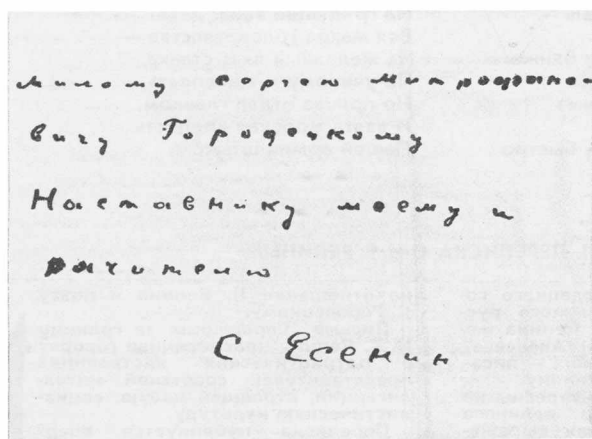 Милому Сергею Митрофано-
вичу Городецкому
Наставнику моему и
рачителю
С Есенин